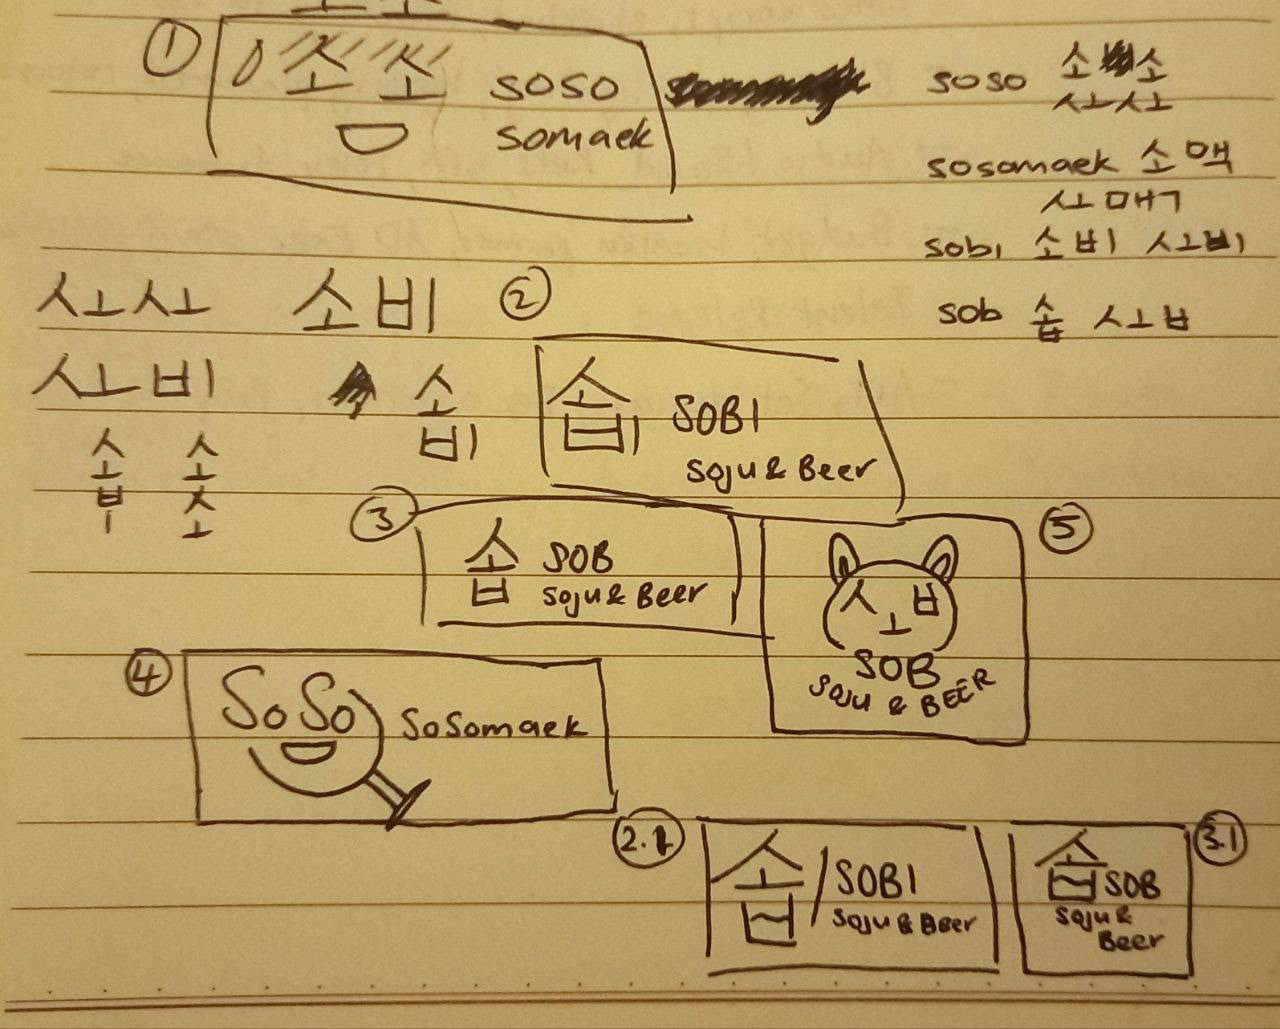 ① 소 소 soso
somaek
soso 소 소
ㅅㅗㅅㅗ
sosomaek 소맥
ㅅㅗ ㅁㅐㄱ
sobi 소비 ㅅㅗㅂㅣ
sob 솝 ㅅㅗㅂ
ㅅㅗㅅㅗ 소비
ㅅㅗㅂㅣ 소
비
소 소
②
소비 SOBI
Soju & Beer
③
솝 SOB
Soju & Beer
⑤
ㅅㅗㅂ
SOB
SOJU & BEER
④
SoSo SoSomaek
2.1
솝 / SOBI
Soju & Beer
3.1
솝 SOB
Soju &
Beer